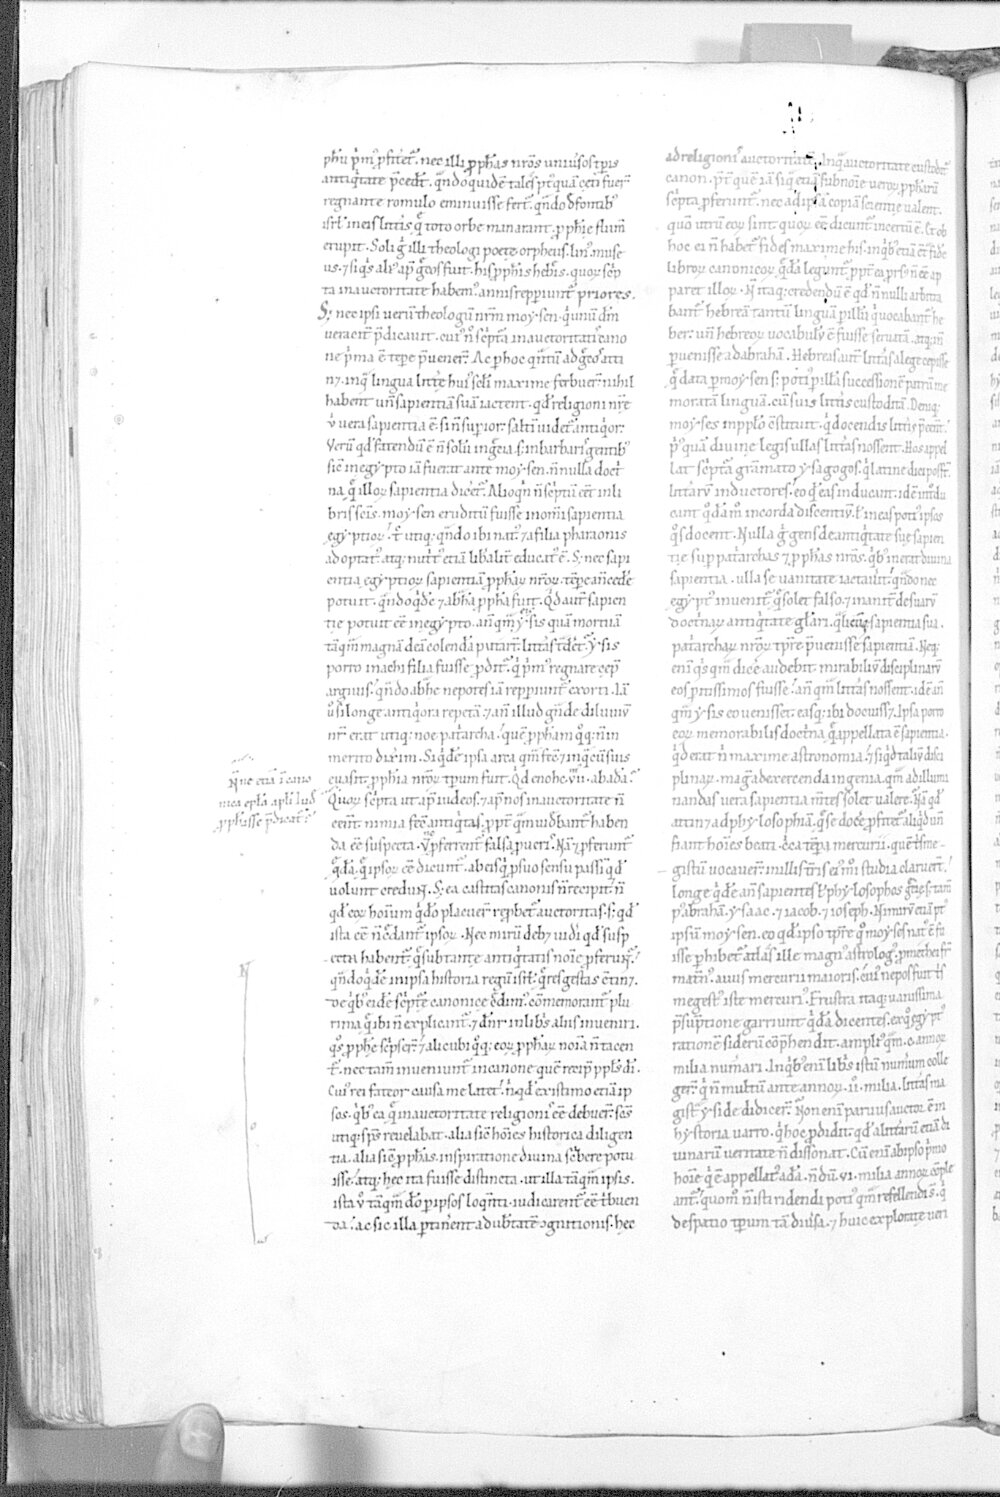 phīa p̄m' ꝓfitet͛. nec illi ꝓphās nr̄os uniu͛sos tꝑis
antiq͛tate p̄cedt͛. qn̄doquidē tales pt̾quā ceti fuer̄
regnante romulo eminuisse fert͛. qn̄do d̄ fontib;
isrl̄ in eis litt͛is q̄ toto orbe manarant. ꝓphīe flum̄
erupit. Soli g̊ illi theologi poete orpheus. lin'. muse
us. ⁊ siq͛s ali' ap͛ gr̄cos fuit. his ꝓph̄is hebr̄is. quoꝝ sc͛p
ta in auctoritate habem'. annis repp̄iunt͛ priores.
S; nec ipsi uerū theologū nr̄m moy-sen. q͛ unū d̄m
uerac͛ it̄ p̄dicauit. cui' n̄ sc͛pta in auctoritatis cano
ne p͛ma ē tēpe p̄uener̄. Ac ꝑ hoc qn̄tū ad gr̄cos atti
n;. in q͛ lingua litt͛e hui' sc͛li maxime ferbuer̄. nihil
habent un̄ sapientiā suā iactent. qd̄ religioni nr̄e
v̊ uera sapientia ē. si n̄ sup͛ior. saltī uidet͛ antiq͛or:
Verū qd̄ fatendū ē n̄ solū in gr̄cia s; in barbaris gentib'
sic̄ in egy-pto iā fuerat ante moy-sen. n̄nulla doct͛
na. q̄ illoꝝ sapientia dicet͛. Alioqn̄ n̄ sc͛ptū eet in li
bris sc̄is. moy-sen eruditū fuisse in om̄i sapientia
egy-ptioꝝ. Tc̄ utiq; qn̄do ibi nat'. ⁊ a filia pharaonis
adoptat'. atq; nut͛t'. etiā libalit͛ educat' ē. S; nec sapi
entia egy-ptioꝝ sapientiā ꝓphaꝝ nr̄oꝝ tēpe antecede͛
potuit. qn̄doq͛de ⁊ abhā ꝓpha fuit. Q͛d aut̄ sapien
tie potuit ee in egy-pto. an̄ qm̄ y-sis quā mortuā
tāqm̄ magnā deā colendā putarn̄t. litt͛as t͛det͛. Y-sis
porro inachi filia fuisse ꝓdit͛. q͛ p͛m' regnare cepit
argiuis. qn̄do abhe nepotes iā repp̄iunt͛ exorti. Iā
u͛ si longe antiq͛ora repetā. ⁊ an̄ illud gn̄de diluuiū
nr̄ erat utiq; noe patͣrcha. quē ꝓphām q͛q; n̄ in
merito dix̄im. Siq͛de ipsa arca qm̄ fec̄ ⁊ in q͛ cū suis
euasit. ꝓph̄ia nr̄oꝝ tp̄rum fuit. Q͛d enoch e. vii. ab adā?
Quoꝝ sc͛pta ut ap̄ iudeos. ⁊ ap̄ nos in auctoritate n̄
eent. nimia fec̄ antiq͛tas. ꝓpt͛ qm̄ uidbant͛ haben
da eē suspecta. n̄ ꝓferrent͛ falsa ꝓ ueris. Nā ⁊ ꝓferunt͛
q͛dā. q̄ ipsoꝝ ee dicunt͛. ab eis q͛ ꝓ suo sensu passī qd̄
uolunt credun̄t. S; ea castitas canonis n̄ recipit. n̄
qd̄ eoꝝ hoīum q͛ d̄o placuer̄ repbet͛ auctoritas. s; qd̄
ista eē n̄ c͛dant͛ ipsoꝝ. Nec mirū deb; uid̄i qd̄ susp
ecta habent͛. q̄ sub tante antiq͛tatis noīe ꝓferun̄t.
qn̄doq͛de in ipsa historia regū isrl̄. q̄ res gestas c̄tin;.
de q͛b' eidē sc͛pt͛e canonice c͛dim'. cōmemorant͛ plu
rima q̄ ibi n̄ explicant͛. ⁊ dn̄r in lib͛s aliis inueniri.
q̄s ꝓphe sc͛pser̄. ⁊ alicubi q͛q; eoꝝ ꝓphaꝝ noīa n̄ tacen
t͛. nec tam̄ inueniunt͛ in canone quē recip͛ ppl̄s d̄i.
Cui' rei fateor causa me latet. n̄ qd̄ existimo etiā ip
sos. q͛b' ea q̄ in auctoritate religionis eē debuer̄. sc̄s
utiq; sp̄s reuelabat. alia sic̄ hoīes historica diligen
tia. alia sic̄ ꝓphas. inspiratione diuina sc͛bere potu
isse. atq; hec ita fuisse distincta. ut illa tāqm̄ ipsis.
ista v̊ tāqm̄ d̄o ꝑ ipsos loqn̄ti. iudicarent͛ eē t͛buen
da. ac sic illa ꝑtin̄ent ad ub͛tatē ꝯgnitionis. hec
N̄ne etiā ī cano
nica epl̄a apl̄i Iud
ꝓphasse p̄dicat͛.
ad religionis auctoritatē. In q͛ auctoritate custodit͛
canon. p̄t quē iā siq̄ etiā sub noīe ueroꝝ ꝓpharū
sc͛pta ꝓferunt͛. nec ad ipsā copiā scientie ualent.
quō utrū eoꝝ sint quoꝝ eē dicunt͛ incertū ē. Et ob
hoc ei n̄ habet͛ fides maxime his. in q͛b' etiā c̄t͛ fidē
libroꝝ canonicoꝝ q͛dā legunt͛. ꝓpt͛ ea prs' n̄ eē ap
paret illoꝝ. N itaq; credendū ē qd̄ n̄nulli arbitra
bant͛ hebreā tantū linguā ꝑ illū q͛ uocabant͛ he
ber. un̄ hebreoꝝ uocabulū ē fuisse seruatā. atq; īn
ꝑuenisse ad abrahā. Hebreas aut̄ litt͛as a lege cepisse
q̄ data ꝑ moy-sen s; poti' ꝑ illā successionē patrū me
moratā linguā. cū suis litt͛is custoditā. Deniq;
moy-ses in ppl̄o c̄stituit. q͛ docendis litt͛is p̄eent͛.
p͛'quā diuine legis ullas litt͛as nossent. Hos appel
lat sc͛ptͣ gr̄mmato y-sagogos. q͛ latine dici poss̄t.
litt͛arū inductores. eo qd̄ eas inducant. idē int͛du
cant q͛dā m̊ in corda discentiū. ł in eas poti' ipsos
q̊s docent. Nulla g͛ gens de antiq͛tate sue sapien
tie sup̄ patͣrchas ⁊ ꝓphas nr̄os. q͛b' inerat diuina
sapientia. ulla se uanitate iactau͛it. qn̄do nec
egy-pt' inuenit͛. q̄ solet falso. ⁊ inanit͛ de suarū
doctͥnaꝝ antiq͛tate glāri. q̄licūq; sapientia sua.
patͣrchaꝝ nr̄oꝝ tp̄re p̄uenisse sapientiā. Neq;
eni q͛sqm̄ dice͛ audebit. mirabiliū disciplinarū
eos pitissimos fuisse. an̄ qm̄ litt͛as nossent. id ē an̄
qm̄ y-sis eo uenisset. easq; ibi docuiss;. Ipsa porro
eoꝝ memorabilis doctͥna q̄ appellata ē sapientia.
q͛d erat n̄ maxime astronomia. ⁊ siq͛d taliū disci
plinaꝝ. mag' ad exercenda ingenia. qm̄ ad illumi
nandas uera sapientia m̄tes solet ualere. Nā qd̄
attin; ad phy-losophiā. q̄ se doce͛ ꝓfitet͛ aliq͛d un̄
fiant hoīes beati. c͛ca tēpa mercurii. quē t͛sme-
gistū uocauer̄. in illis tr̄is ei'm̊i studia claruer̄t.
longe q͛de an̄ sapientes ł phy-losophos gr̄cie. s; tam̄
p' abrahā. y-saac. ⁊ iacob. ⁊ ioseph. Nimirū etiā p't
ipsum moy-sen. eo qd̄ ipso tp̄re q͛ moy-ses nat' ē fu
isse ꝑhibet͛ atlās ille magn' astrolog'. promethei fr̄
matn̄'. auus mercurii maioris. cui' nepos fuit t͛s
megest' iste mercuri'. Frustra itaq; uanissima
p̄sūptione garriunt q͛dā dicentes. ex q͛ egy-pt'
rationē siderū cōp̄hendit. ampli'qm̄.c. annoꝝ
milia numari. In q͛b' eni lib͛s istū numum colle
ger̄. q͛ n̄ multū ante annoꝝ. ii. milia. litt͛as ma
gist͛ y-side didicer̄. Non eni paruus auctor ē in
hy-storia uarro. q͛ hoc ꝓdidit. qd̄ a litt͛arū etiā di
uinarū ueritate n̄ dissonat. Cū eni ab ipso p͛mo
hoīe q͛ ē appellat' adā. n̄dū vi. milia annoꝝ cōple
ant͛. quom̊ n̄ isti ridendi poti' qm̄ refellendi s̄t. q͛
de spatio tp̄rum tā diu͛sa. ⁊ huic explorate ueri